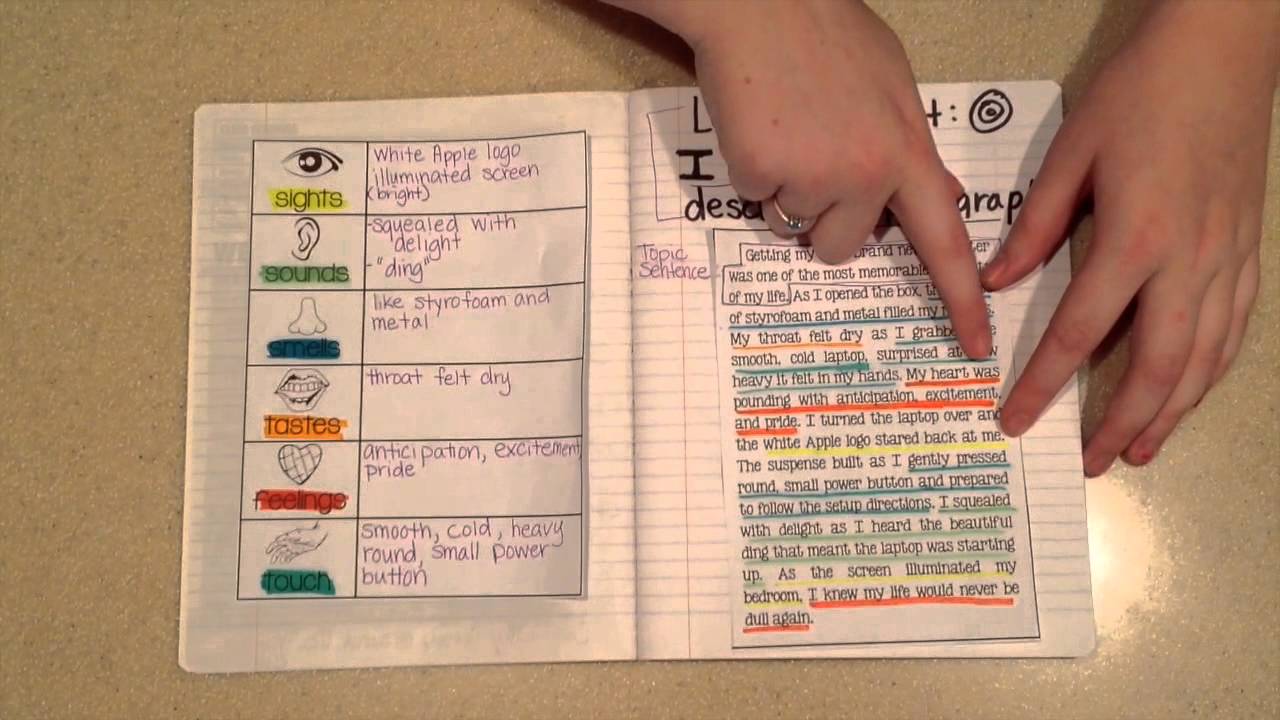 sights
White Apple logo
illuminated screen
(bright)
sounds
-squealed with
delight
-"ding"
smells
like styrofoam and
metal
tastes
throat felt dry
feelings
anticipation, excitement,
pride
touch
smooth, cold, heavy
round, small power
button
L
t:
I
Topic
Sentence
Getting my brand
was one of the most memorable
of my life. As I opened the box,
of styrofoam and metal filled my
My throat felt dry as I
smooth, cold laptop, surprised at
heavy it felt in my hands. My heart was
pounding with anticipation, excitement,
and pride. I turned the laptop over and
the white Apple logo stared back at me.
The suspense built as I gently pressed
round, small power button and prepared
to follow the setup directions. I squealed
with delight as I heard the beautiful
ding that meant the laptop was starting
up. As the screen illuminated my
bedroom, I knew my life would never be
dull again.